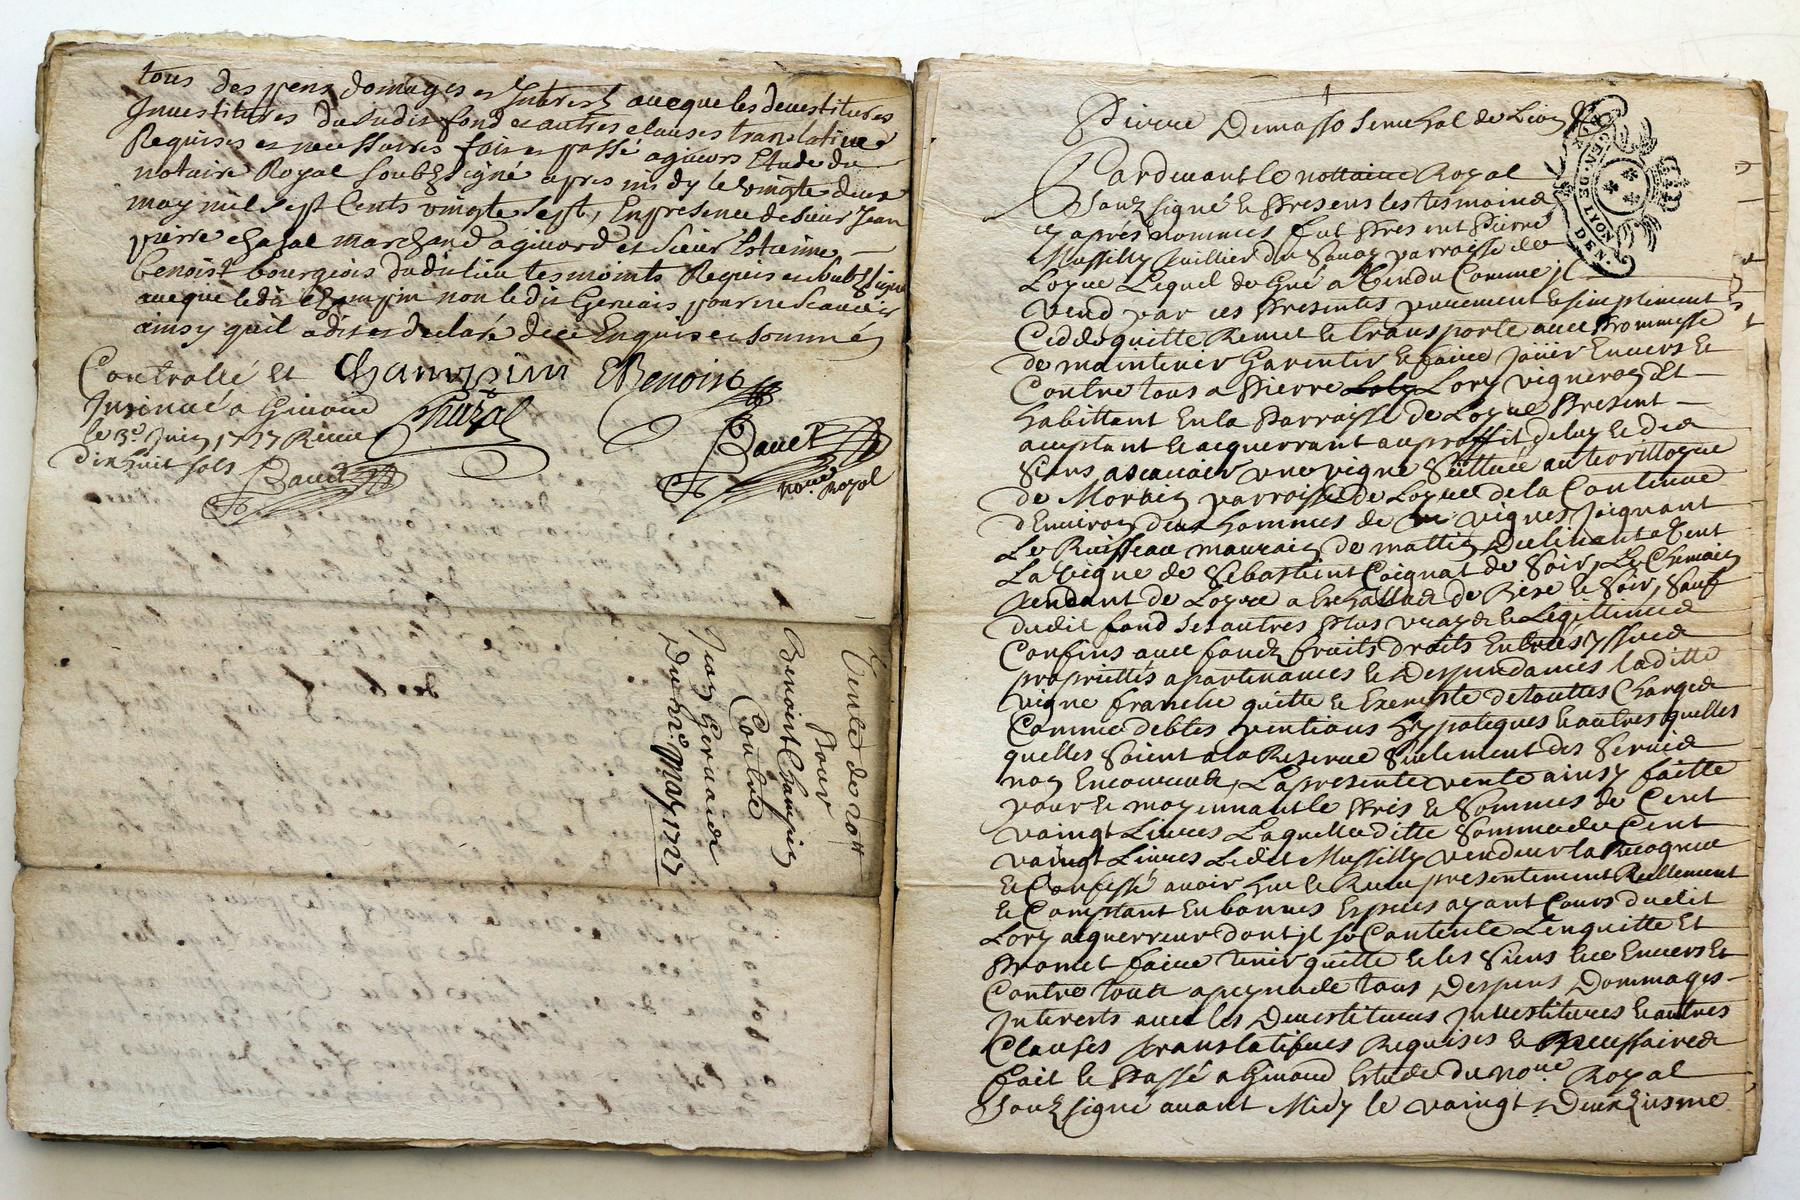 tous despens domages et Interests avecque les devestitures
Investitures du susdit fond et autres clauses translative
Requises et necessaires fait et passé a givors Etude du
notaire Royal soubzsigné apres midy le vingte deux
may mil sept Cents vingte sept, En presence de sieur Jean
pierre chazal marchand a givord et sieur Estienne
benoist bourgeois dudit lieu tesmoints Requis et soubzsigné
avecque ledit champin non ledit Gervais pour ne scavoir
ainsy quil a dit et declaré de ce Enquis et sommé
Controllé et
Insinué a Givord
le 3e Juin 1727 Receu
dix huit sols
Champin
EBenoist
Chazal
Bauet
Bauet
noire Royal
Vente de 20tt
Pour
Benoist Champin
Contre
Jean Gervais
Du 22e May 1727
Pierre Demasso Senechal de Lion
GEN. DE LYON
Pardevant le nottaire Royal
Souz signé et Presens les tesmoins
cy aprés nommés fut Present Pierre
Massilly parroisse de
Loyre Lequel de Gré a Vendu Comme il
vend par ces Presentes purement et simplement
Cedde quitte Remet et transporte avec Prommesse
de maintenir Garentir et faire Joüir Envers et
Contre tous a Pierre Lory vigneron Et
habittant En la Parroisse de Loyre Present
aceptant et acquerrant au proffit de luy et des
Siens ascavoir une vigne Scittuée au territtoire
de parroisse de Loyre de la Contenue
d'Environ deux hommes de vignes Joignant
Le Ruisseau de mattin
La Vigne de Sebastient Coignat de Soir, Le Chemin
tendant de Loyre a de Bize et Soir, Sauf
dudit fond ses autres Plus vrays et Legittimes
Confins avec fondz fruits droits Entrées yssues
propriettés apartenances et Despendances laditte
vigne franche quitte et Exempte de touttes Charges
Comme debtes pentions hypoteques et autres quelles
quelles Soient a la Reserve Seulement des Servis
non Encourus, La presente vente ainsy faitte
pour et moyennant le Pris et Sommes de Cent
vaingt Livres Laquelle ditte Somme de Cent
vaingt Livres Ledit Massilly vendeur la Recogneue
et Confessé avoir heu et Receu presentement Reellement
et Comptant En bonnes Especes ayant Cours dudit
Lory acquerreur dont il se Contente L'enquitte Et
Promet faire tenir quitte et les Siens Envers Et
Contre tous a peyne de tous Despens Dommages
Interests avec les Devestitures Investitures et autres
Clauses translatifves Requises et Necessaires
fait et Passé a Givord Estude du noire Royal
Souz signé avant Midy le vaingt Deuxziesme